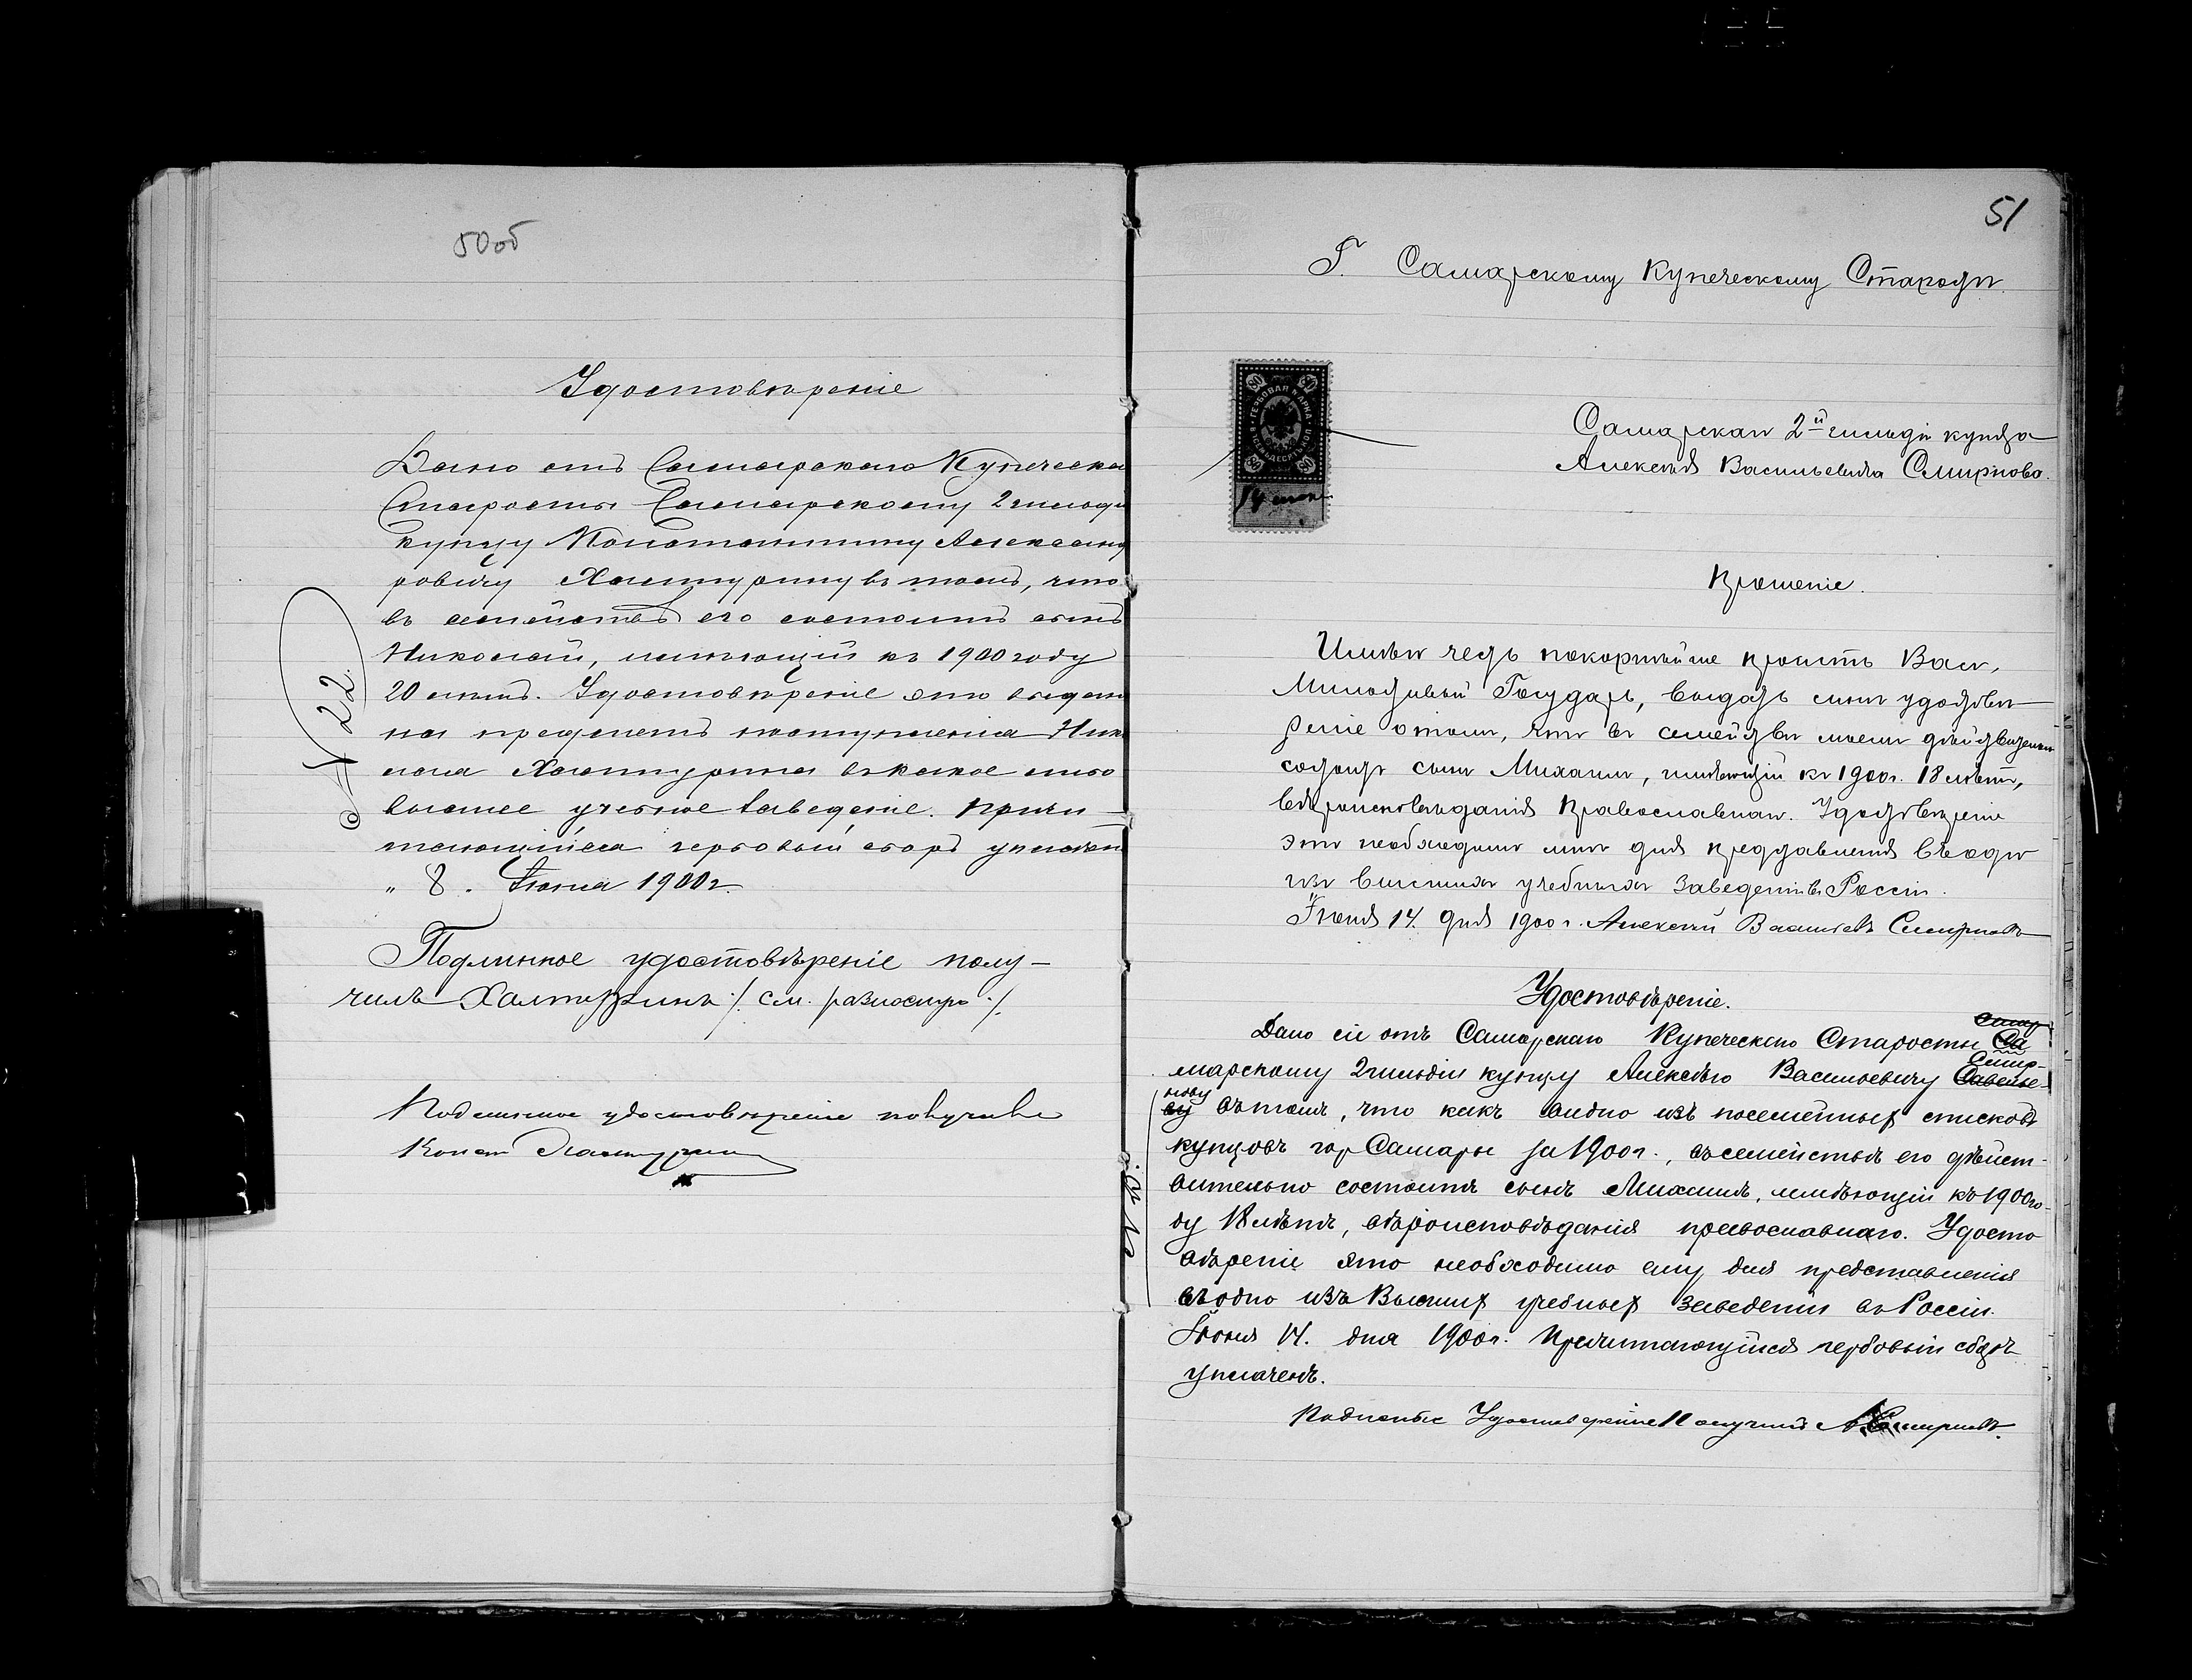 50об
Удостовѣреніе
Дано отъ Самарскаго Купеческа
Старосты Самарскому 2 гильдіи
купцу Константину Александ
ровичу Халтурину въ томъ, что
въ семействѣ его состоитъ сынъ
Николай, имѣющій къ 1900 году
20 лѣтъ. Удостовѣреніе это выдано
на предметъ поступленія Ник
лая Халтурина въ какое либо
высшее учебное заведеніе. Причи-
тающійся гербовый сборъ уплачен
" 8. Іюня 1900 г.
№ 22.
Подлинное удостовѣреніе полу-
чилъ Халтуринъ /. см. разносную ./.
Подлинное удостовѣреніе получилъ
Конст Халтуринъ
51
Г. Самарскому Купеческому Старостѣ.
ГЕРБОВАЯ МАРКА
80 80
80 80
14 іюня
Самарскаго 2й гильдіи купца
Алексѣя Васильевича Смирнова.
Прошеніе.
Имѣю честь покорнѣйше просить Васъ,
Милостивый Государь, выдать мнѣ удостовѣ
реніе о томъ, что въ семействѣ моемъ дѣйствительно
состоитъ сынъ Михаилъ, имѣющій къ 1900 г. 18 лѣтъ,
вѣроисповѣданія Православнаго. Удостовѣреніе
это необходимо мнѣ для представленія въ одно
изъ высшихъ учебныхъ заведеній въ Россіи.
Іюня 14. дня 1900 г. Алексѣй Васильевъ Смирновъ
Удостовѣреніе.
Дано сіе отъ Самарскаго Купеческаго Старосты Са
марскому 2 гильдіи купцу Алексѣю Васильевичу Смир-
нову въ томъ, что какъ видно изъ посемейныхъ списковъ
купцовъ гор Самары за 1900 г., въ семействѣ его дѣйст-
вительно состоитъ сынъ Михаилъ, имѣющій къ 1900 го-
ду 18 лѣтъ, вѣроисповѣданія православнаго. Удосто
вѣреніе это необходимо ему для представленія
въ одно изъ Высшихъ учебныхъ заведеній въ Россіи.
Іюня 14. дня 1900 г. Причитающійся гербовый сборъ
уплаченъ.
Подлиное Удостовереніе Получилъ А Смирновъ.